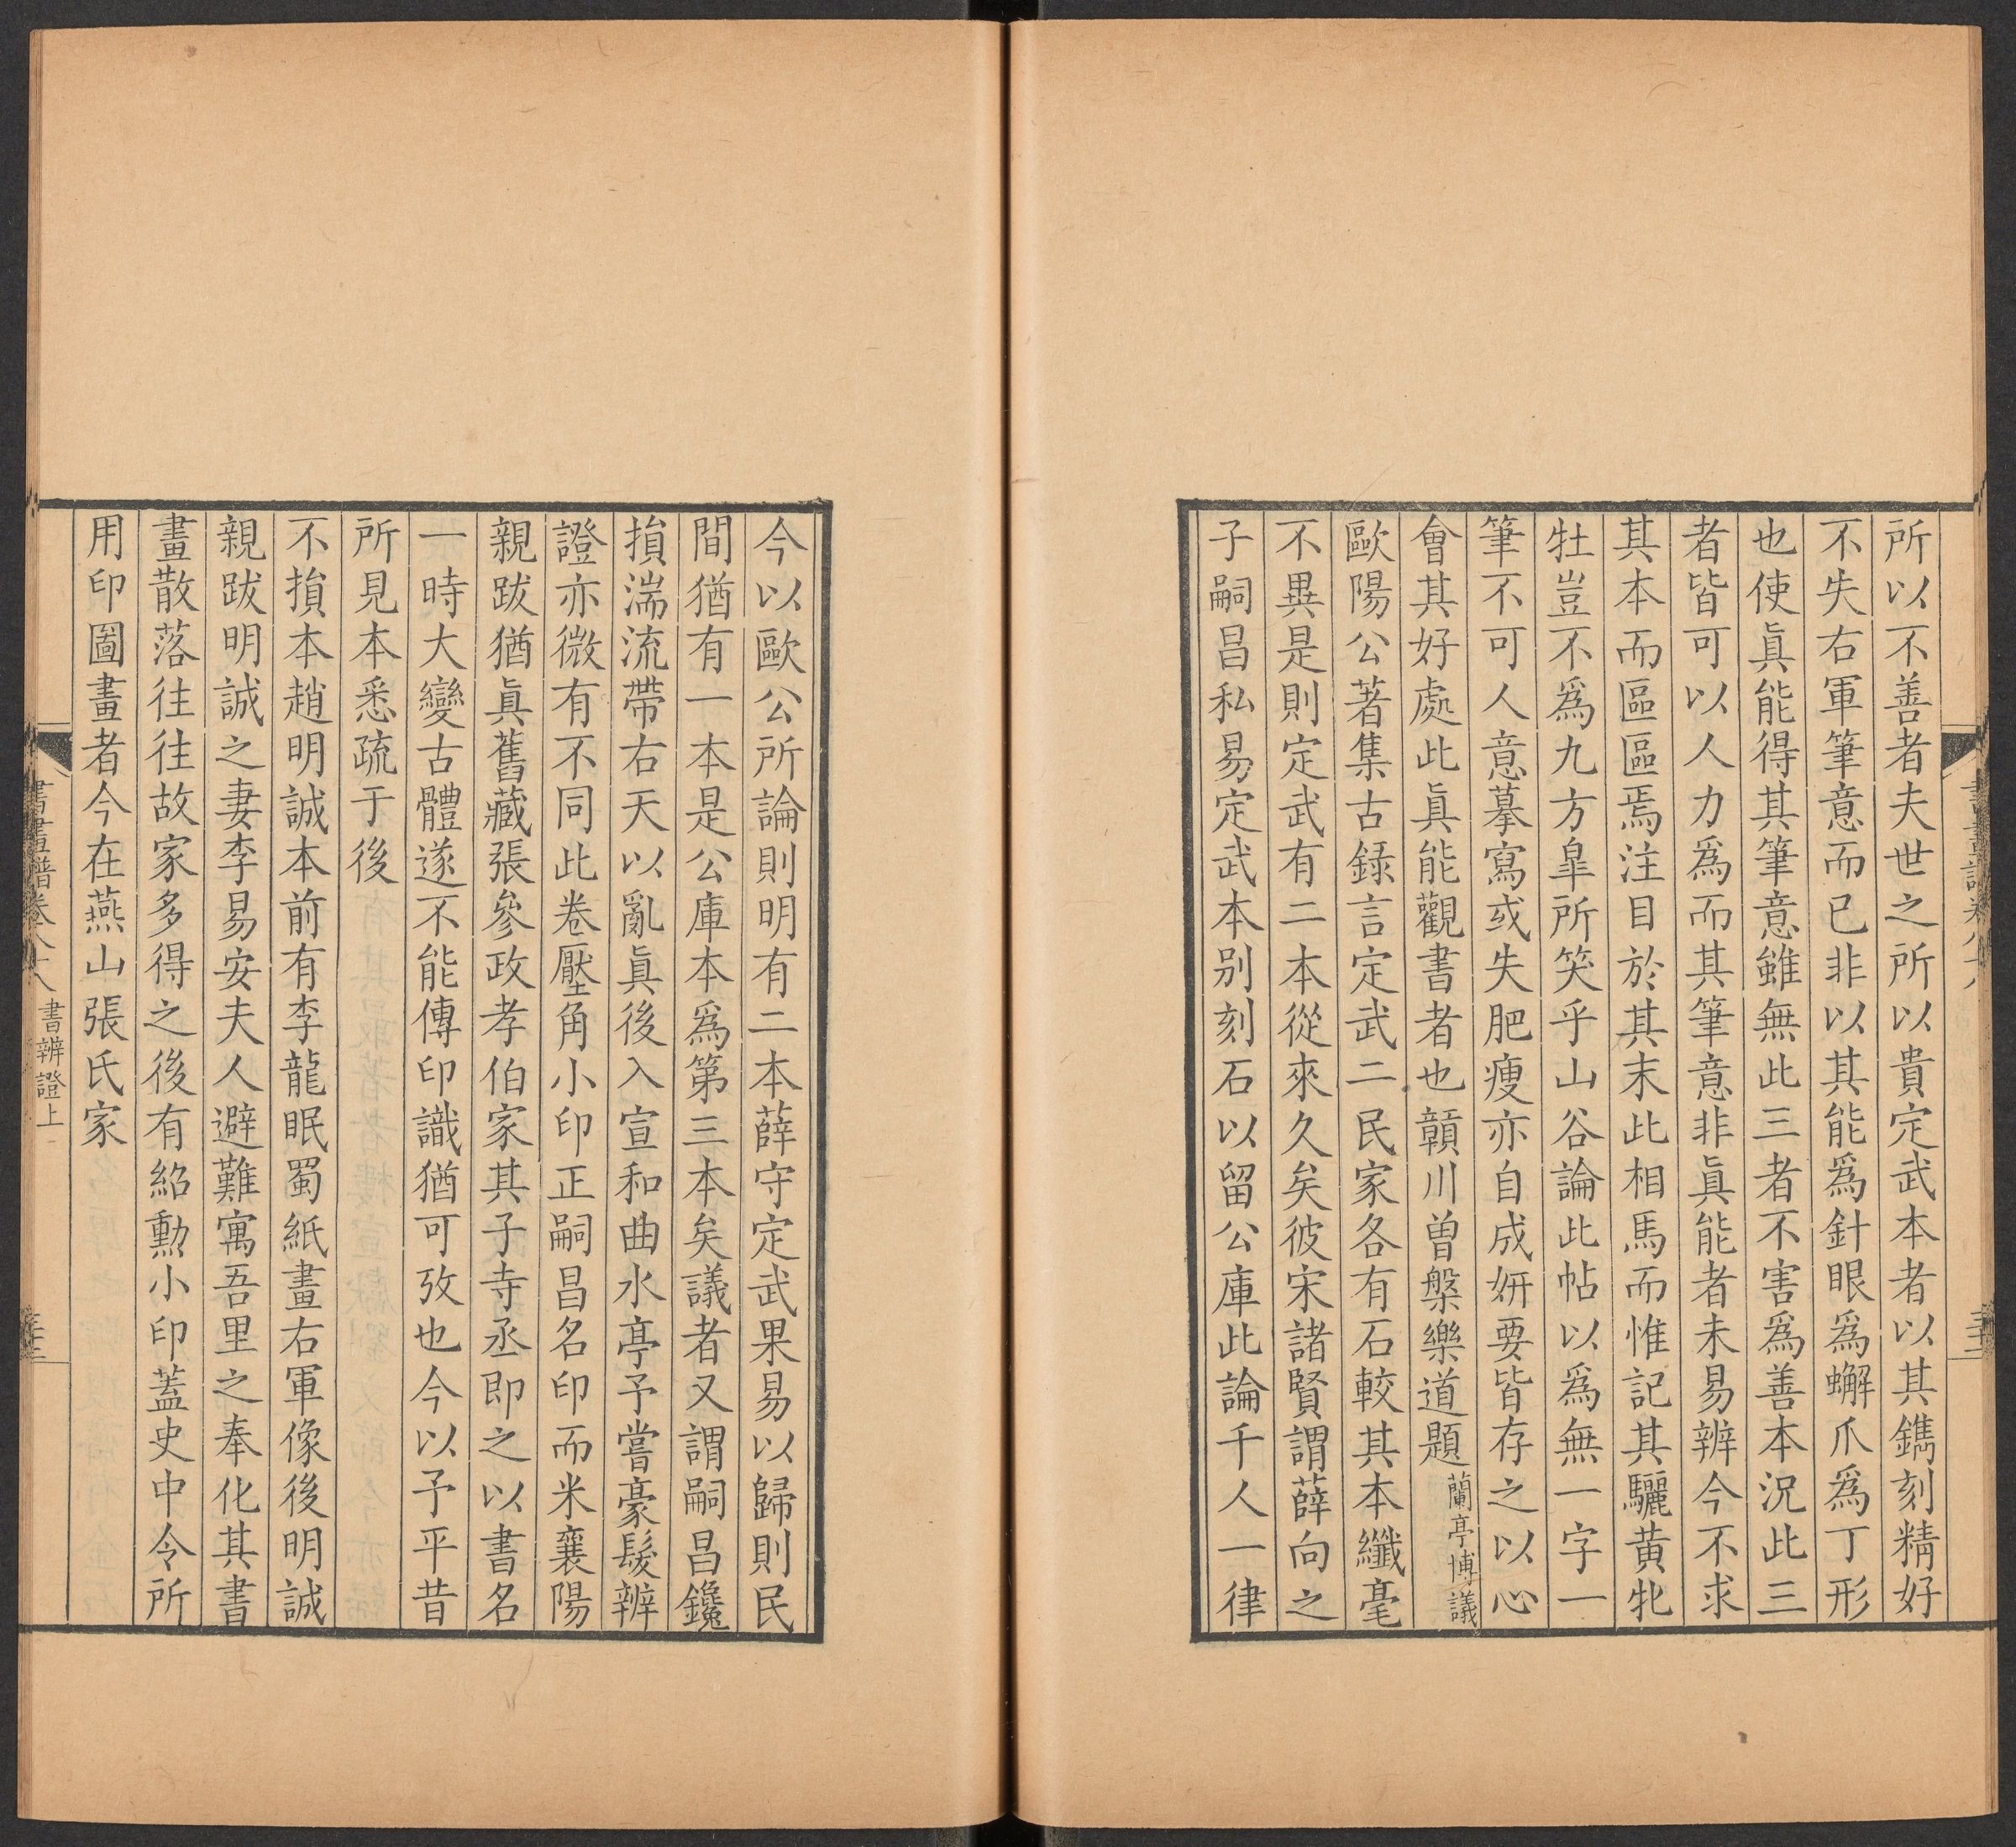 所以不善者夫世之所以貴定武本者以其鐫刻精好
不失右軍筆意而已非以其能爲針眼爲蠏爪爲丁形
也使眞能得其筆意雖無此三者不害爲善本況此三
者皆可以人力爲而其筆意非眞能者未易辨今不求
其本而區區焉注目於其末此相馬而惟記其驪黄牝
牡豈不爲九方臯所笑乎山谷論此帖以爲無一字一
筆不可人意摹寫或失肥瘦亦自成妍要皆存之以心
會其好處此眞能觀書者也贑川曽槃樂道題蘭亭博議
歐陽公著集古録言定武二民家各有石較其本纖毫
不異是則定武有二本從來久矣彼宋諸賢謂薛向之
子嗣昌私易定武本别刻石以留公庫此論千人一律
今以歐公所論則明有二本薛守定武果易以歸則民
間猶有一本是公庫本爲第三本矣議者又謂嗣昌鑱
損湍流帶右天以亂眞後入宣和曲水亭予嘗豪髮辨
證亦微有不同此卷壓角小印正嗣昌名印而米襄陽
親跋猶眞舊藏張參政孝伯家其子寺丞即之以書名
一時大變古體遂不能傳印識猶可攷也今以予平昔
所見本悉疏于後
不損本趙明誠本前有李龍眠蜀紙畫右軍像後明誠
親跋明誠之妻李易安夫人避難寓吾里之奉化其書
畫散落往往故家多得之後有紹勳小印蓋史中令所
用印圖畫者今在燕山張氏家
書畫譜卷八十八 書辨證上